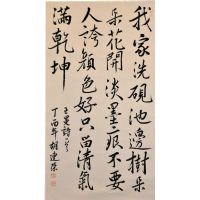 我家洗硯池邊樹朵
朵花開淡墨痕不要
人誇顏色好只留清氣
滿乾坤
王冕詩
丁酉年